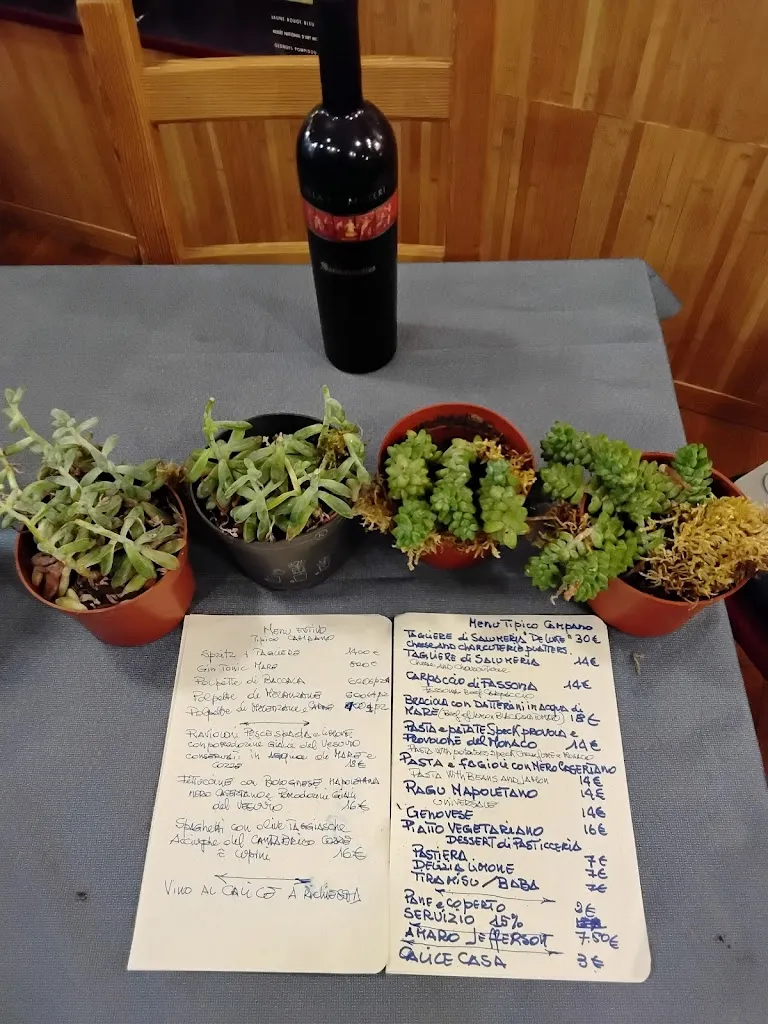 MENU ESTIVO
TIPICO CAMPANO
SPRITZ + TAGLIERE 1400€
GIN TONIC MARE
POLPETTE DI BACCALA
POLPETTE DI MELANZANE
POLPETTE DI MELANZANE E
RAVIOLONI PESCE SPADA E LIMONE
CON POMODORINI GIALLI DEL VESUVIO
CONSERVATI IN ACQUA DI MARE E
COZZE 18€
FETTUCINE CON BOLOGNESE NAPOLETANA
NERO CASERTANO E POMODORINI GIALLI
DEL VESUVIO 16€
SPAGHETTI CON OLIVE TAGGIASCHE
ACCIUGHE DEL CANTABRICO COZZE
E LUPINI 16€
VINO AL CALICE A RICHIESTA
MENU TIPICO CAMPANO
TAGLIERE di SALUMERIA "DE LUXE" 30€
CHEESE AND CHARCUTERIE PLATTERS.
TAGLIERE di SALUMERIA 14€
CHEESE AND CHARCUTERIE
CARPACCIO di FASSONA 14€
FASSONA BEEF CARPACCIO
BRACIOLA CON DATTERINI IN ACQUA di
MARE 18€
PASTA e PATATE SPECK PROVOLA e
PROVOLONE DEL MONACO 14€
PASTA WITH POTATOES SPECK
PASTA e FAGIOLI CON NERO CASERTANO
PASTA WITH BEANS AND 14€
RAGU NAPOLETANO 14€
UNIVERSALE
GENOVESE 14€
PIATTO VEGETARIANO 16€
DESSERT di PASTICCERIA
PASTIERA 7€
DELIZIA LIMONE 7€
TIRAMISU / BABA 7€
PANE e COPERTO 2€
SERVIZIO 15%
AMARO JEFFERSON 7.50€
CALICE CASA 3€